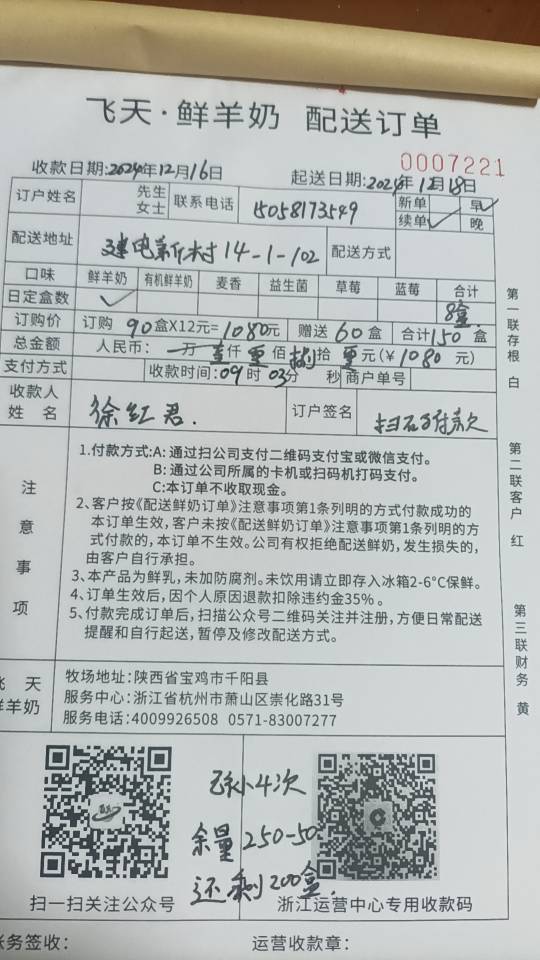 飞天·鲜羊奶 配送订单
0007221
收款日期:2024年12月16日 起送日期:2024年12月18日
订户姓名 先生 女士 联系电话 15058173549 新单 早✓
续单✓ 晚
配送地址 建电新村14-1-102 配送方式
口味 鲜羊奶 有机鲜羊奶 麦香 益生菌 草莓 蓝莓 合计
日定盒数 ✓ 8盒
订购价 订购 90盒X12元=1080元 赠送 60盒 合计150盒
总金额 人民币: 万壹仟零佰捌拾零元(￥1080元)
支付方式 收款时间:09时03分 秒 商户单号
收款人姓名 徐红君. 订户签名 扫码付款
注意事项
1.付款方式:A:通过扫公司支付二维码支付宝或微信支付。
B:通过公司所属的卡机或扫码机打码支付。
C:本订单不收取现金。
2、客户按《配送鲜奶订单》注意事项第1条列明的方式付款成功的
本订单生效,客户未按《配送鲜奶订单》注意事项第1条列明的方
式付款的,本订单不生效。公司有权拒绝配送鲜奶,发生损失的,
由客户自行承担。
3、本产品为鲜乳,未加防腐剂。未饮用请立即存入冰箱2-6°C保鲜。
4、订单生效后,因个人原因退款扣除违约金35%。
5、付款完成订单后,扫描公众号二维码关注并注册,方便日常配送
提醒和自行起送,暂停及修改配送方式。
飞天鲜羊奶
牧场地址:陕西省宝鸡市千阳县
服务中心:浙江省杭州市萧山区崇化路31号
服务电话:4009926508 0571-83007277
4次
余量250-50
还剩200盒.
扫一扫关注公众号 浙江运营中心专用收款码
账务签收: 运营收款章:
第一联存根 白
第二联客户 红
第三联财务 黄